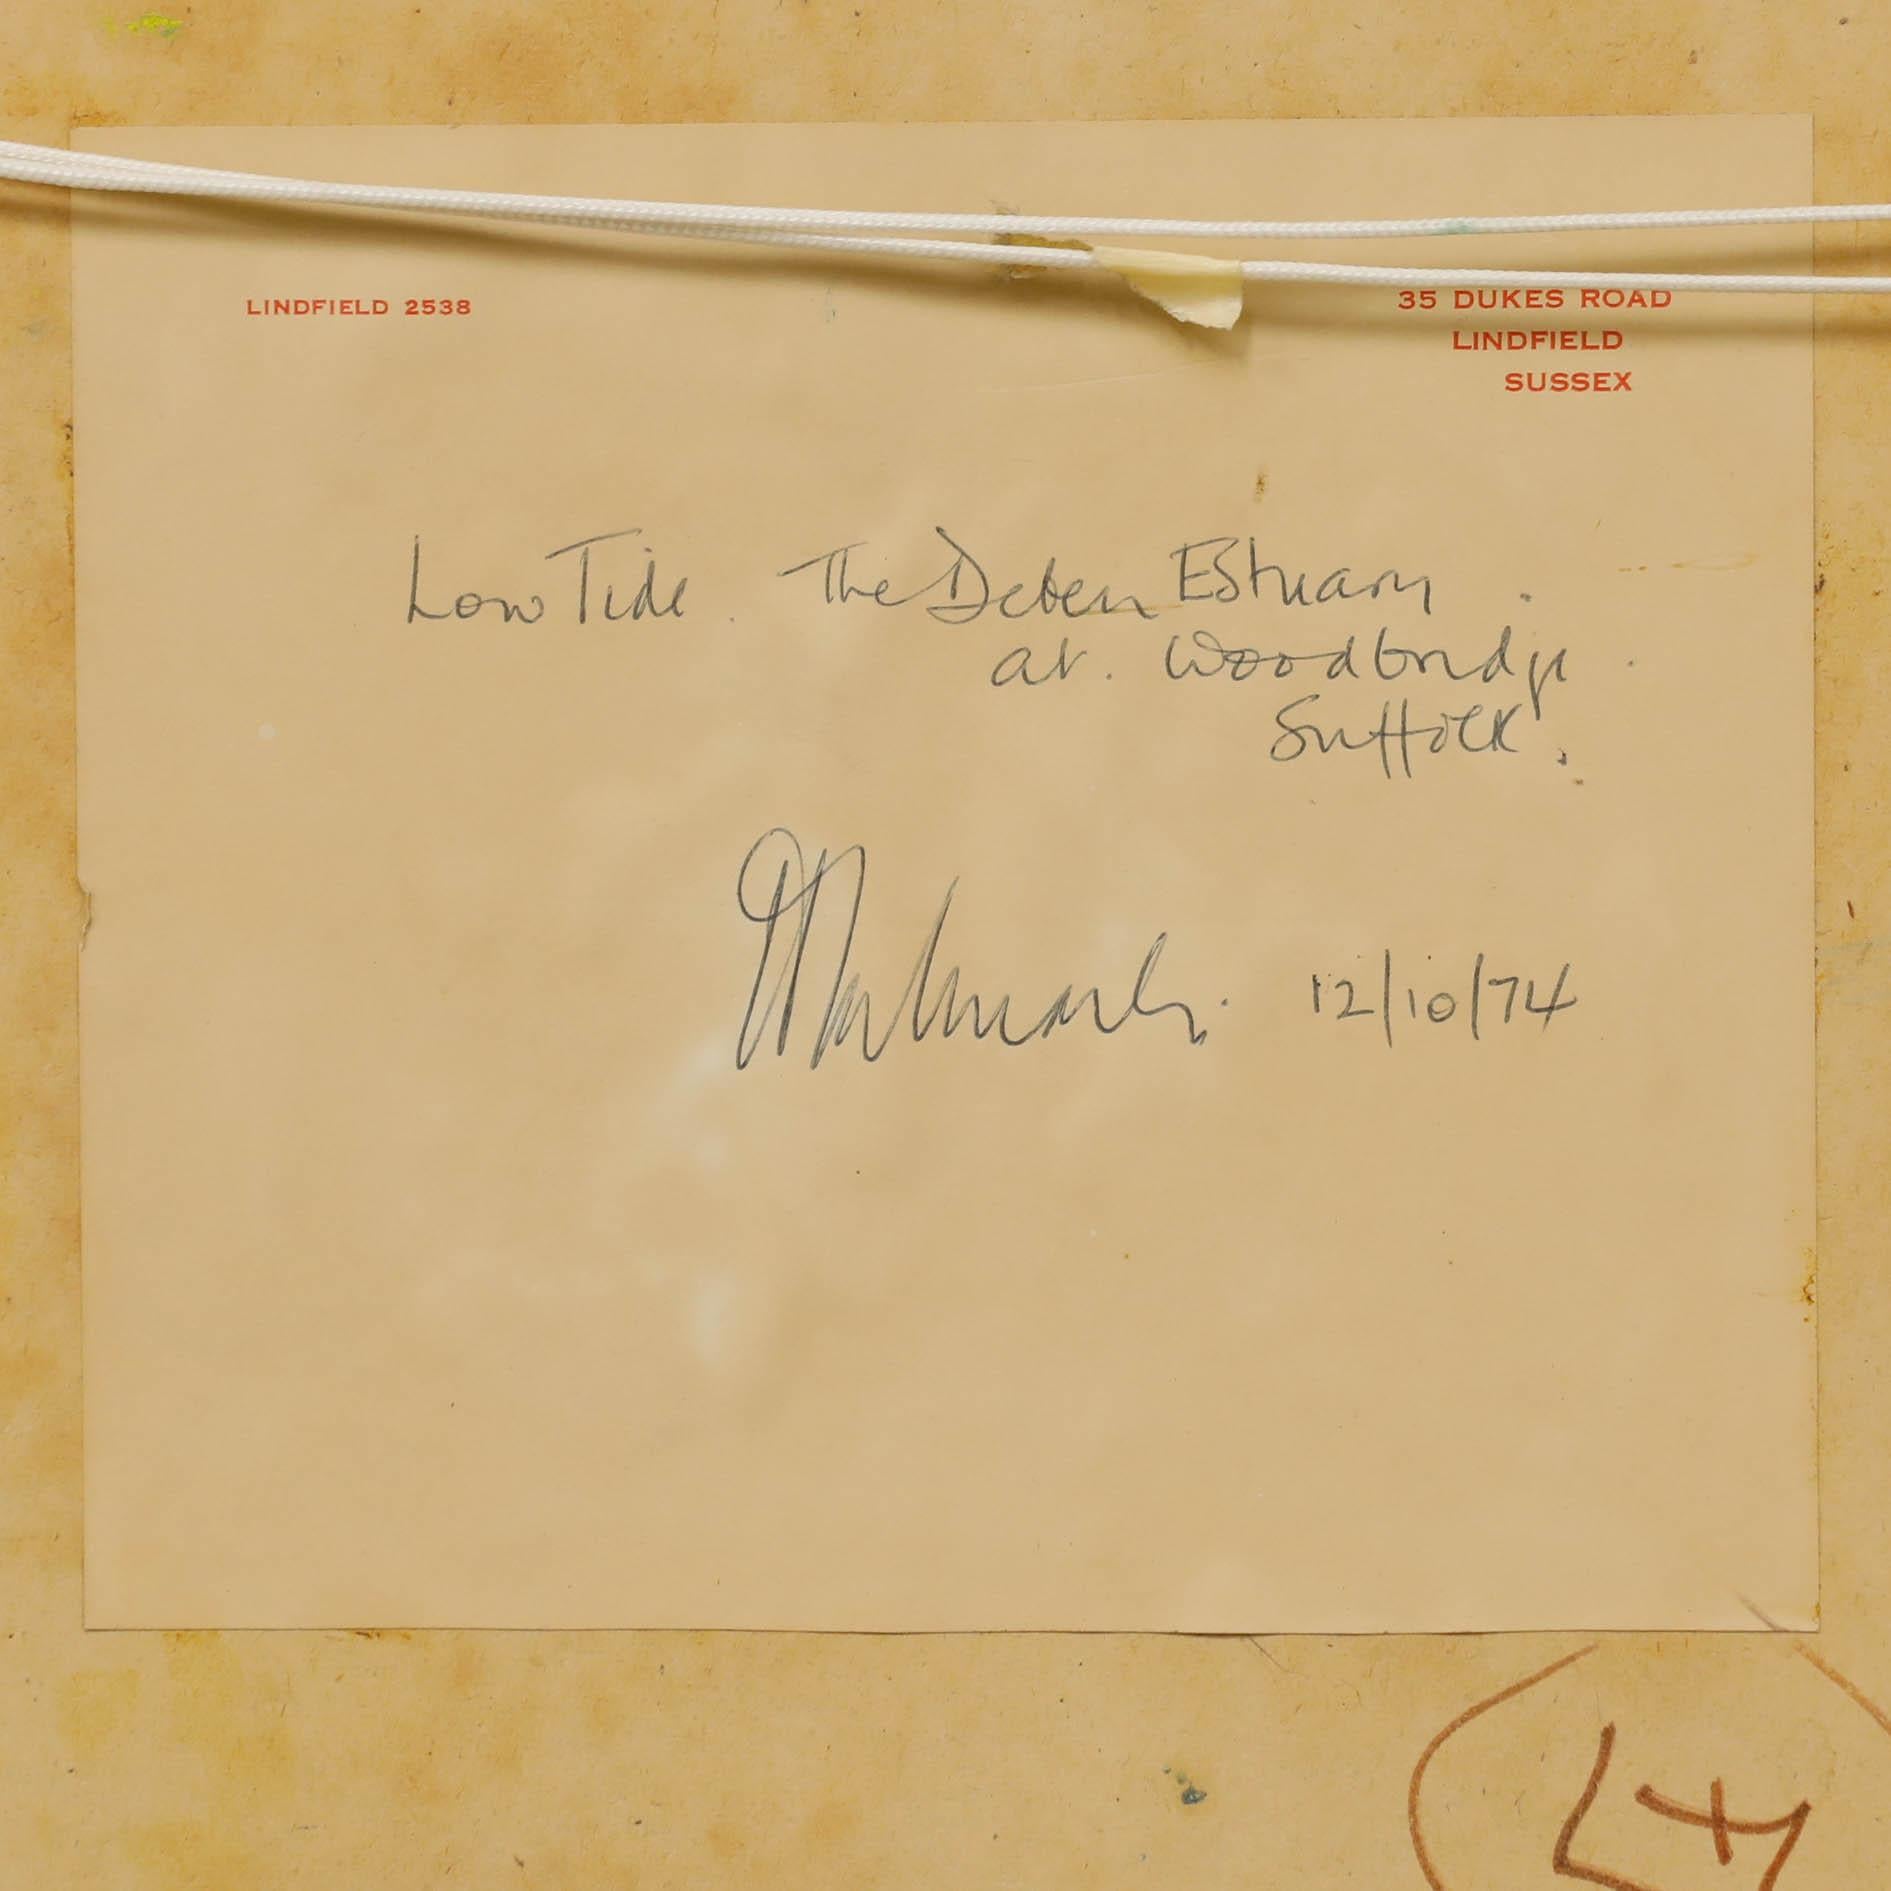 LINDFIELD 2538
35 DUKES ROAD
LINDFIELD
SUSSEX
Low Tide. The Deben Estuary.
at. Woodbridge.
Suffolk.
12/10/74